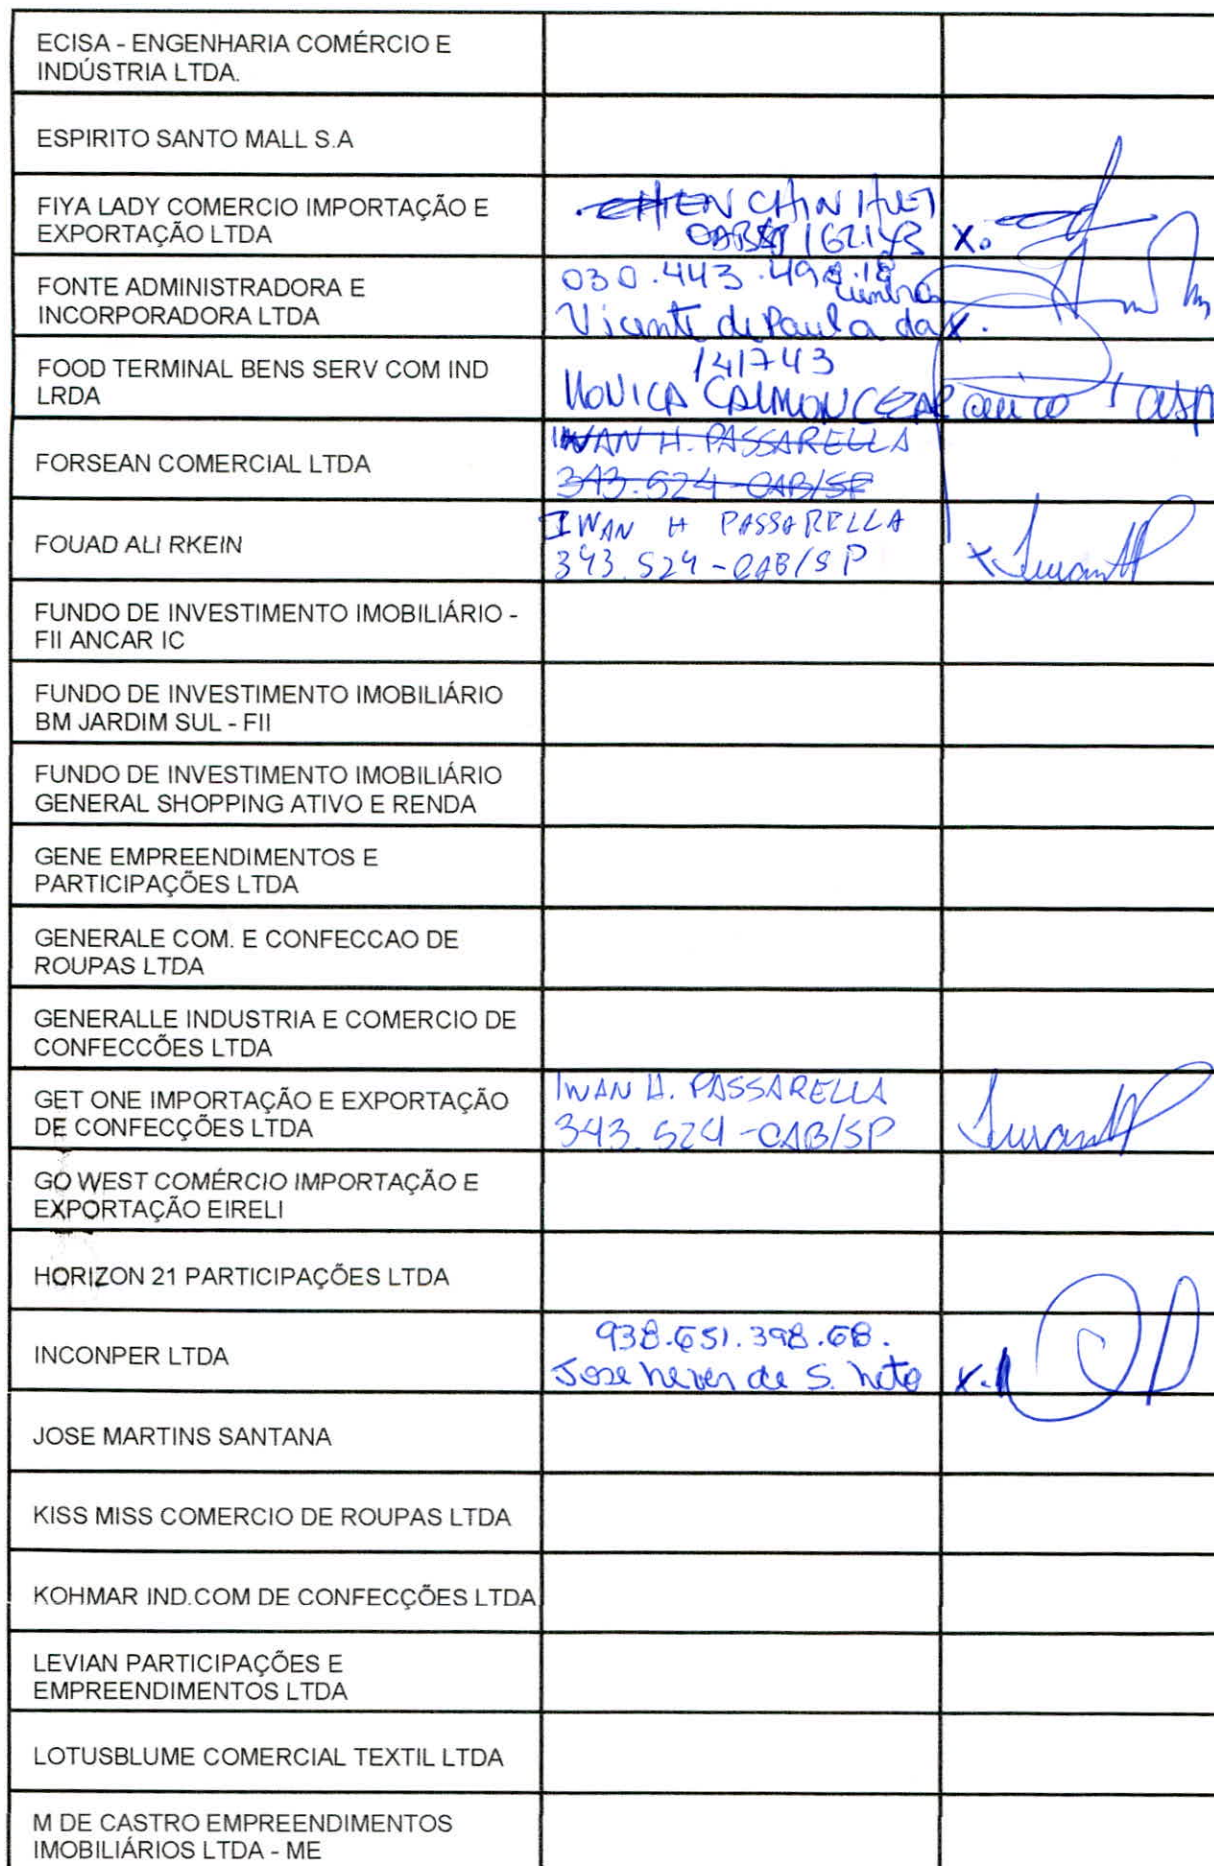 ECISA - ENGENHARIA COMÉRCIO E
INDÚSTRIA LTDA.
ESPIRITO SANTO MALL S.A
FIYA LADY COMERCIO IMPORTAÇÃO E
EXPORTAÇÃO LTDA
CHIEN CHIN HUEI
162143 X.
FONTE ADMINISTRADORA E
INCORPORADORA LTDA
030.443.498.18
Vicente de Paula da X.
FOOD TERMINAL BENS SERV COM IND
LRDA
141743
MONICA CALMON CEZAR
FORSEAN COMERCIAL LTDA
IWAN H. PASSARELLA
343.524-OAB/SP
FOUAD ALI RKEIN
IWAN H PASSARELLA
343.524-OAB/SP X
FUNDO DE INVESTIMENTO IMOBILIÁRIO -
FII ANCAR IC
FUNDO DE INVESTIMENTO IMOBILIÁRIO
BM JARDIM SUL - FII
FUNDO DE INVESTIMENTO IMOBILIÁRIO
GENERAL SHOPPING ATIVO E RENDA
GENE EMPREENDIMENTOS E
PARTICIPAÇÕES LTDA
GENERALE COM. E CONFECCAO DE
ROUPAS LTDA
GENERALLE INDUSTRIA E COMERCIO DE
CONFECCÕES LTDA
GET ONE IMPORTAÇÃO E EXPORTAÇÃO
DE CONFECÇÕES LTDA
IWAN H. PASSARELLA
343.524-OAB/SP
GO WEST COMÉRCIO IMPORTAÇÃO E
EXPORTAÇÃO EIRELI
HORIZON 21 PARTICIPAÇÕES LTDA
INCONPER LTDA
938.651.398.68.
Jose de S. Neto X.
JOSE MARTINS SANTANA
KISS MISS COMERCIO DE ROUPAS LTDA
KOHMAR IND.COM DE CONFECÇÕES LTDA
LEVIAN PARTICIPAÇÕES E
EMPREENDIMENTOS LTDA
LOTUSBLUME COMERCIAL TEXTIL LTDA
M DE CASTRO EMPREENDIMENTOS
IMOBILIÁRIOS LTDA - ME